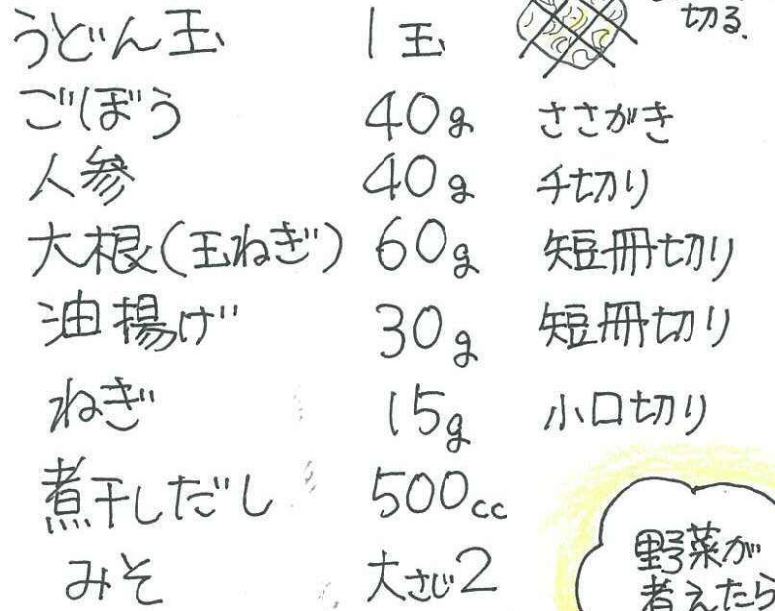 切る.
うどん玉 1玉
ごぼう 40g ささがき
人参 40g 千切り
大根(玉ねぎ) 60g 短冊切り
油揚げ 30g 短冊切り
ねぎ 15g 小口切り
煮干しだし 500cc
みそ 大さじ2
野菜が
煮えたら